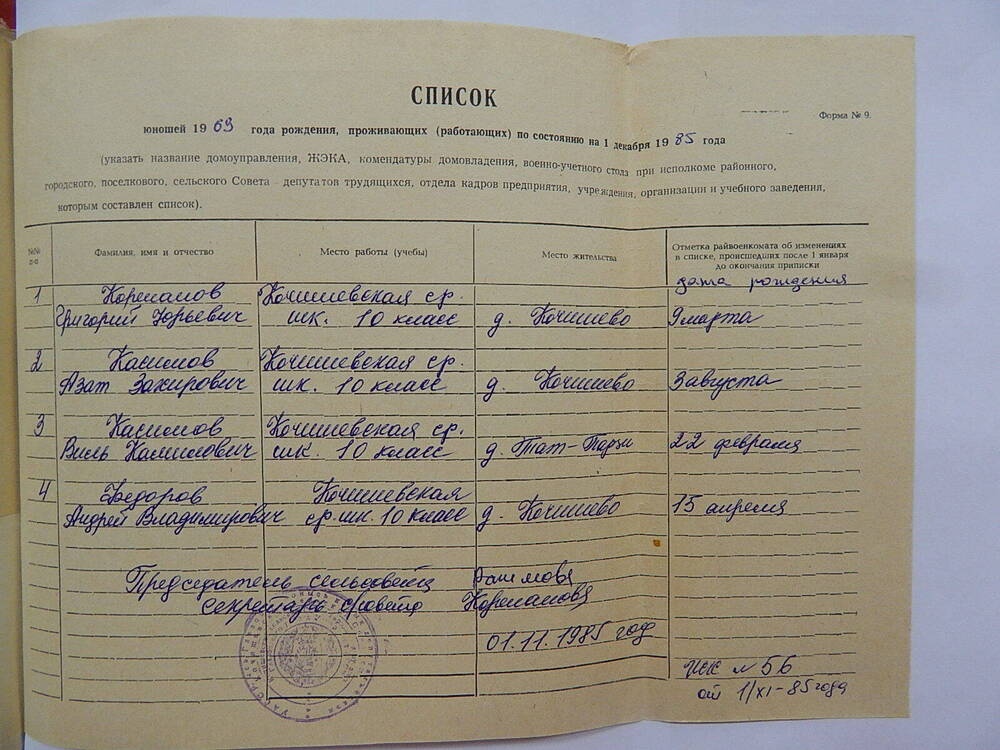 СПИСОК
Форма № 9.
юношей 19 69 года рождения, проживающих (работающих) по состоянию на 1 декабря 19 85 года
(указать название домоуправления, ЖЭКА, комендатуры домовладения, военно-учетного стола при исполкоме районного,
городского, поселкового, сельского Совета депутатов трудящихся, отдела кадров предприятия, учреждения, организации и учебного заведения,
которым составлен список).
№№ п-п
Фамилия, имя и отчество
Место работы (учебы)
Место жительства
Отметка райвоенкомата об изменениях
в списке, происшедших после 1 января
до окончания приписки
дата рождения
1 Корепанов Кочишевская ср.
Григорий Юрьевич шк. 10 класс д. Кочишево 9 марта
2 Касимов Кочишевская ср.
Азат Закирович шк. 10 класс д. Кочишево 3 августа
3 Касимов Кочишевская ср.
Виль Камилович шк. 10 класс д. Тат-Парзи 22 февраля
4 Федоров Кочишевская
Андрей Владимирович ср. шк. 10 класс д. Кочишево 15 апреля
Председатель сельсовета
Секретарь с/совета Корепанова
01.11.1985 год
исх № 56
от 1/XI-85 года